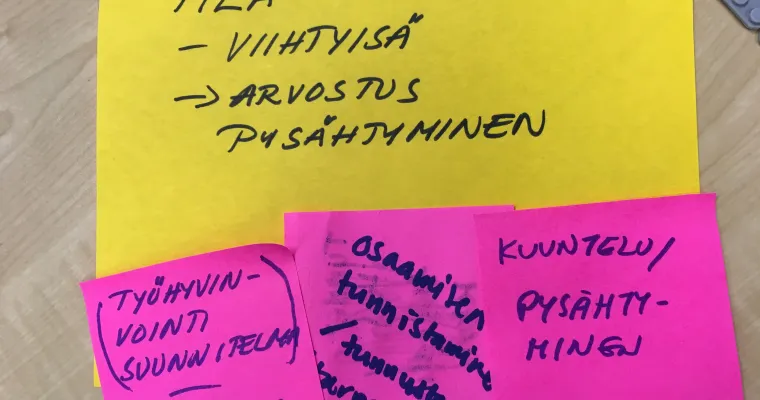 TILA
- VIIHTYISÄ
-> ARVOSTUS
PYSÄHTYMINEN
(TYÖHYVIN-
VOINTI
SUUNNITELMA)
osaamisen
tunnistamine
/ tunnusta
KUUNTELU/
PYSÄHTY-
MINEN